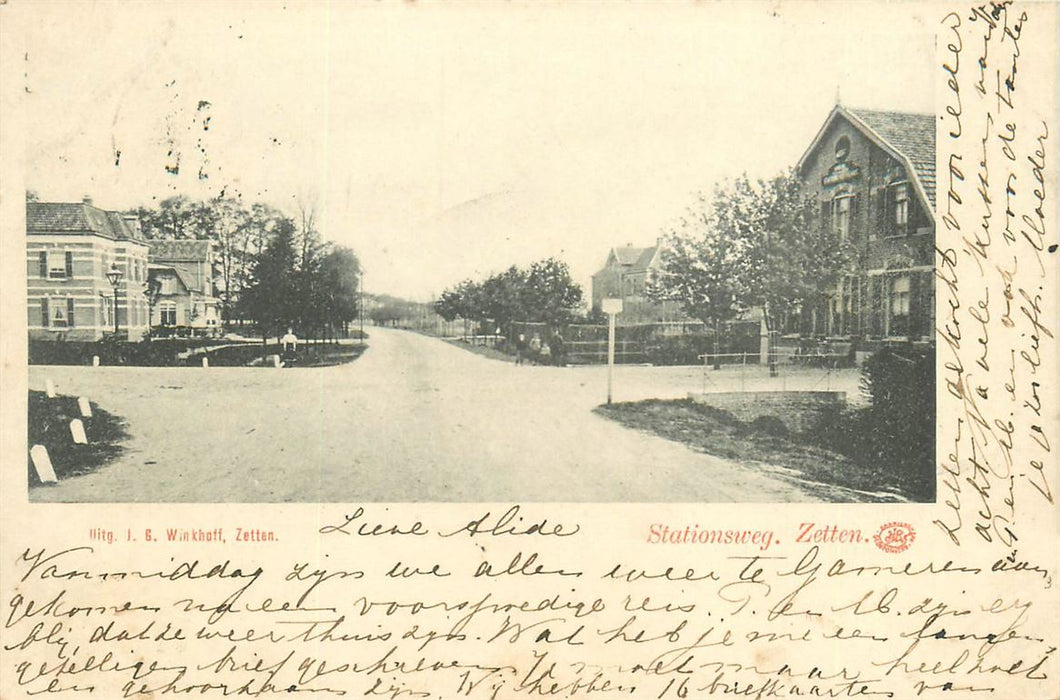 Uitg. J. G. Winkhoff, Zetten.
Stationsweg. Zetten.
Lieve Alide
Vanmiddag zijn we allen weer te Gameren aan
gekomen na een voorspoedige reis. P. en M. zijn erg
blij, dat ze weer thuis zijn. Wat heb je me een langen,
gezelligen brief geschreven. Je moet maar heel zoet
en gehoorzaam zijn. Wij hebben 16 briefkaarten van
Zetten gekocht voor ieder
acht. Ja vele kussen van
en ook voor de tantes
je zoo lief. Moeder